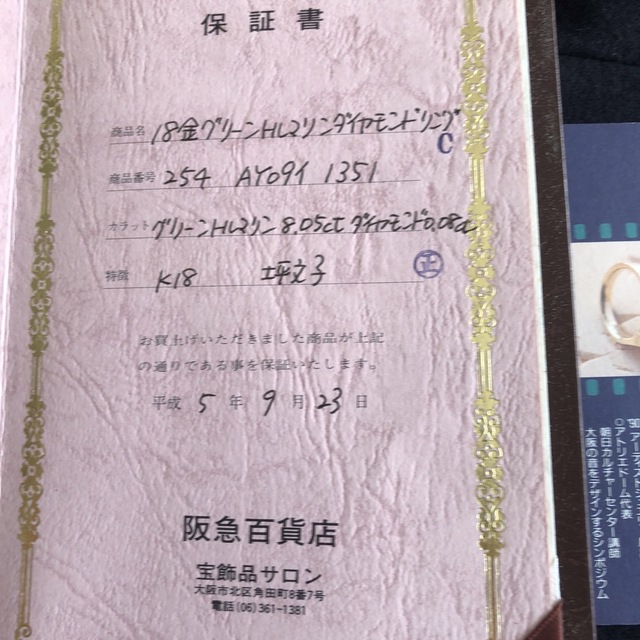 保証書
商品名 18金グリーントルマリンダイヤモンドリング
C
商品番号 254 AY091 1351
カラット グリーントルマリン 8.05ct ダイヤモンド0.08ct
特徴 K18 坪文子 正
お買上げいただきました商品が上記
の通りである事を保証いたします。
平成 5 年 9 月 23 日
阪急百貨店
宝飾品サロン
大阪市北区角田町8番7号
電話(06)361-1381
◎アトリエトーム代表
朝日カルチャーセンター講師
大阪の音をデザインするシンポジウム